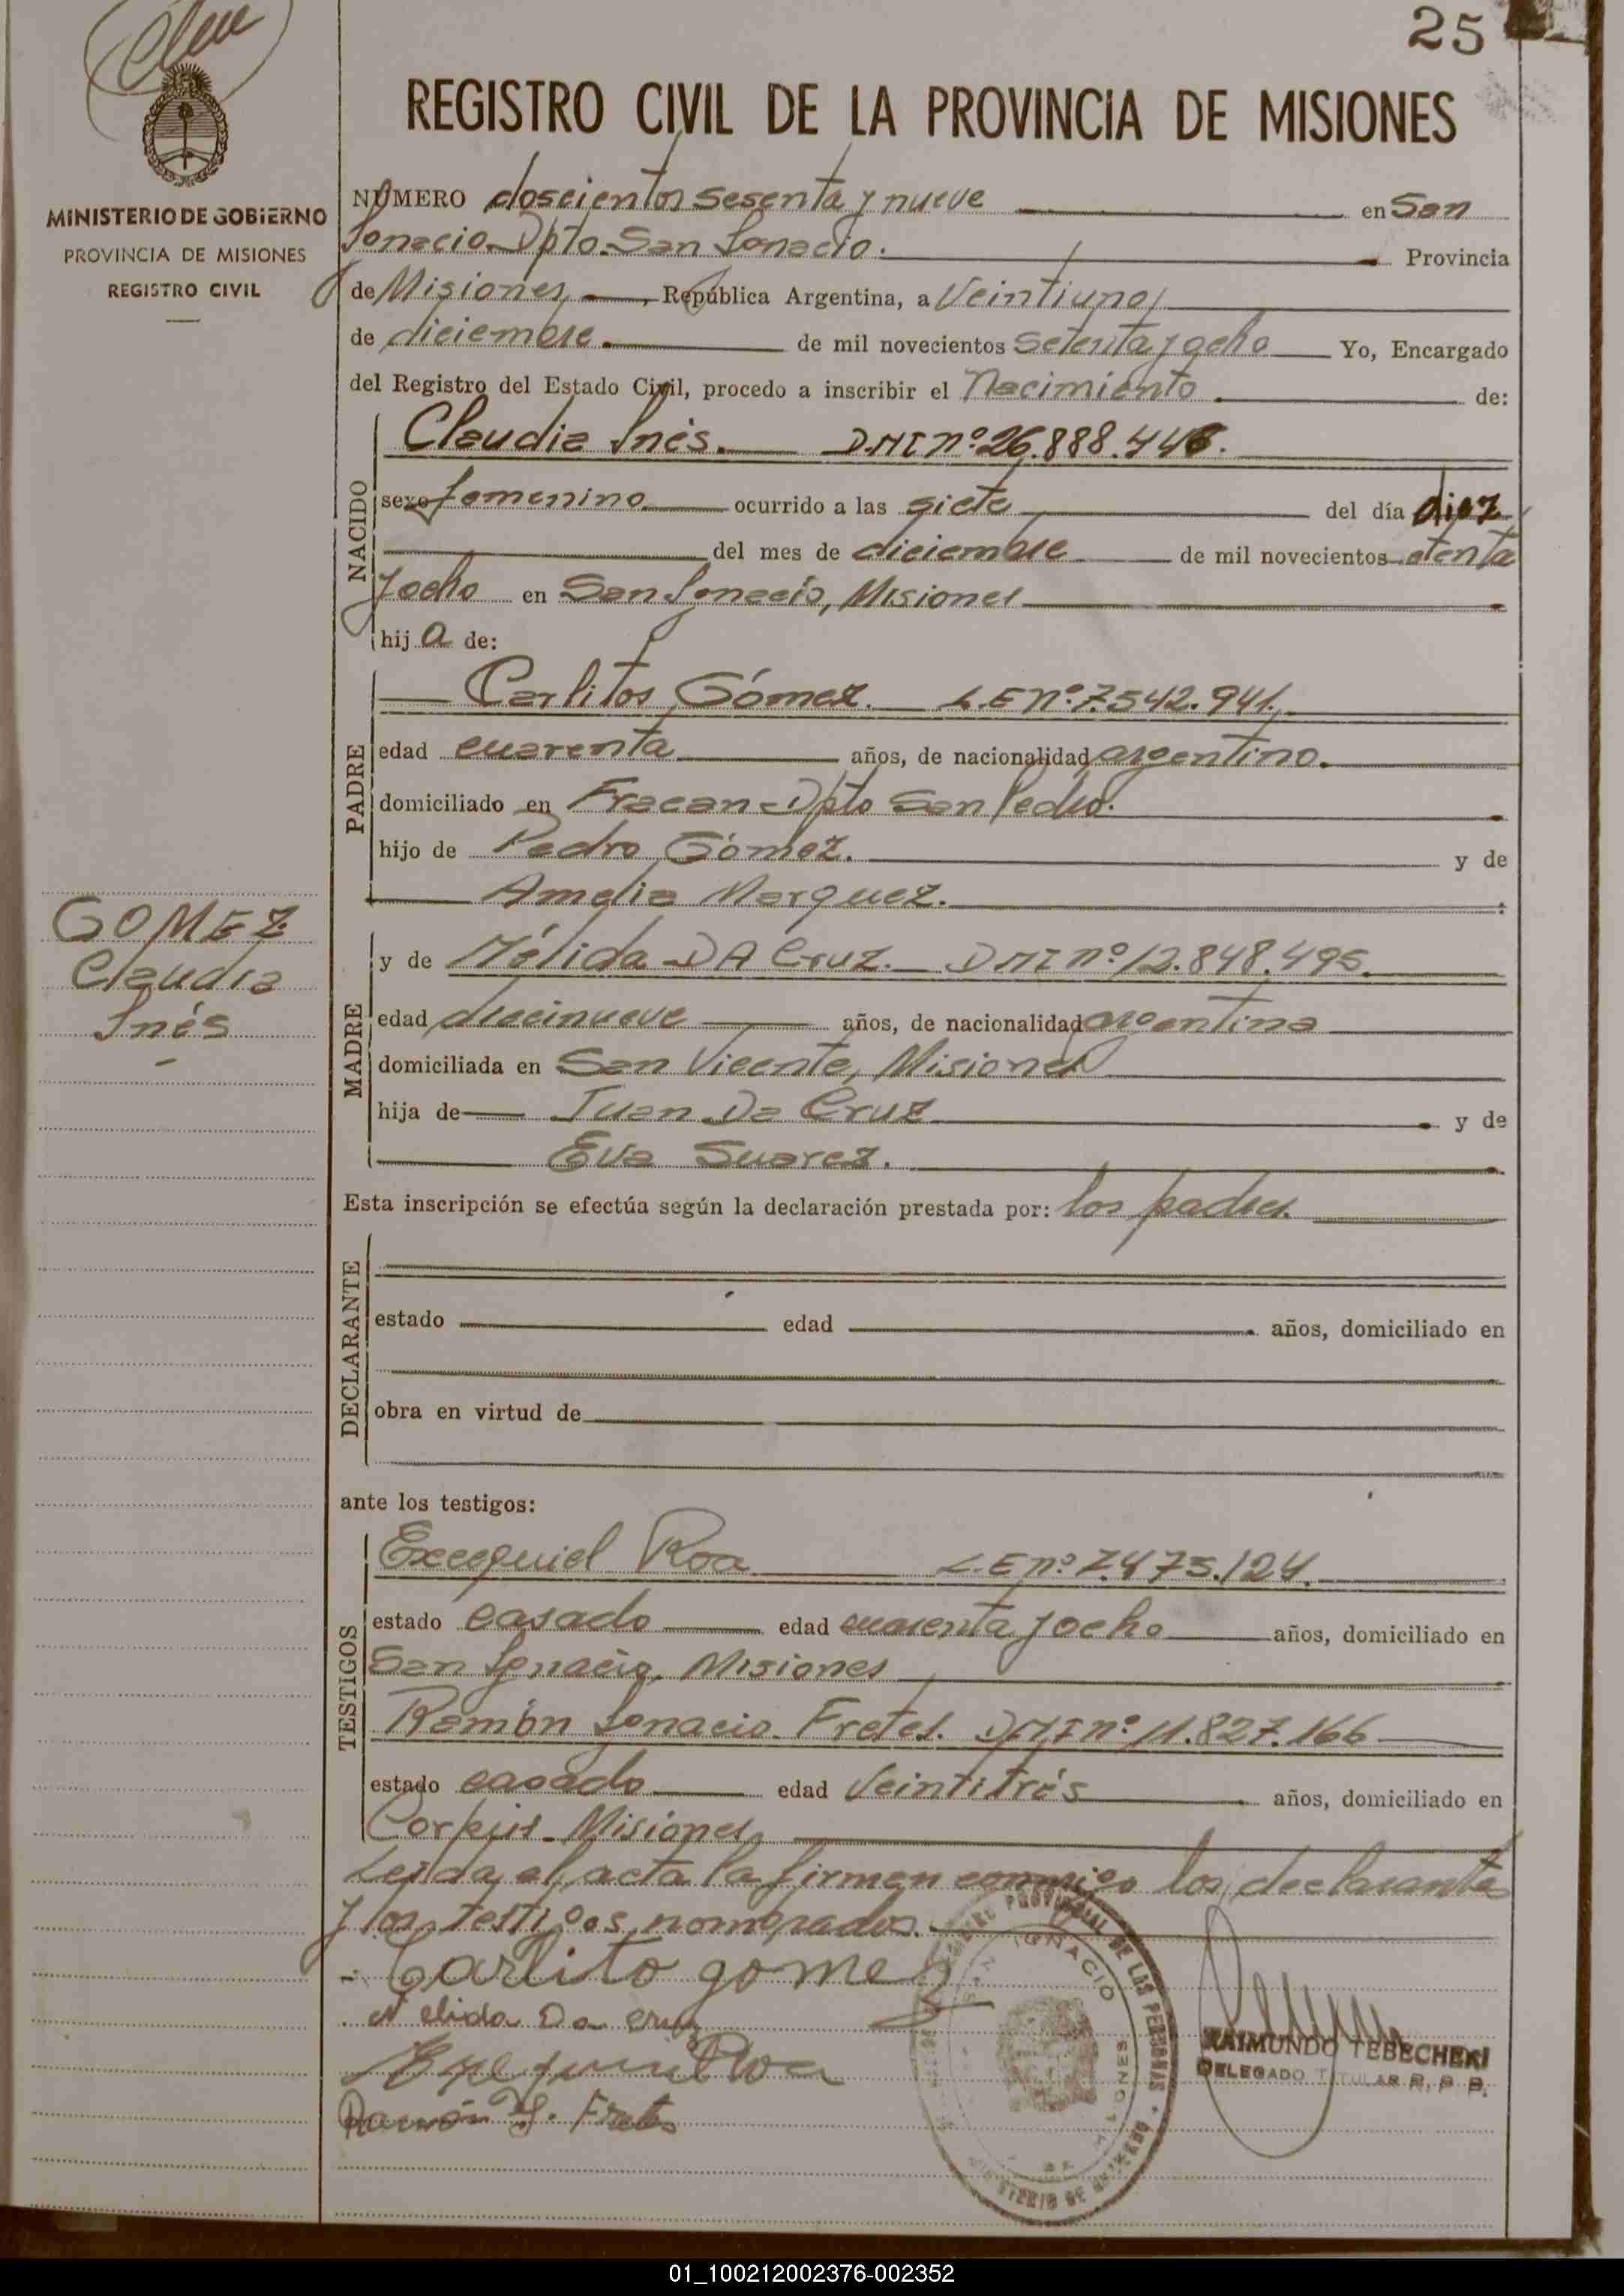 25
REGISTRO CIVIL DE LA PROVINCIA DE MISIONES
MINISTERIO DE GOBIERNO
PROVINCIA DE MISIONES
REGISTRO CIVIL
NÚMERO doscientos sesenta y nueve en San
Ignacio Dpto. San Ignacio. Provincia
de Misiones, República Argentina, a Veintiuno
de diciembre de mil novecientos setenta y ocho Yo, Encargado
del Registro del Estado Civil, procedo a inscribir el Nacimiento de:
NACIDO
Claudia Inés. DNI nº 26.888.446.
sexo femenino ocurrido a las siete del día diez
del mes de diciembre de mil novecientos setenta
y ocho en San Ignacio, Misiones
hija de:
PADRE
Carlitos Gómez. L.E nº 7.542.941.
edad cuarenta años, de nacionalidad argentino.
domiciliado en Fracan - Dpto San Pedro.
hijo de Pedro Gómez. y de
Amelia Marquez.
GOMEZ
Claudia
Inés
MADRE
y de Nélida DA Cruz. DNI nº 12.848.495.
edad diecinueve años, de nacionalidad argentina
domiciliada en San Vicente, Misiones
hija de Juan Da Cruz y de
Eva Suarez.
Esta inscripción se efectúa según la declaración prestada por: los padres.
DECLARANTE
estado edad años, domiciliado en
obra en virtud de
ante los testigos:
TESTIGOS
Excequiel Roa L.E nº 7.475.124.
estado casado edad cuarenta y ocho años, domiciliado en
San Ignacio, Misiones
Ramón Ignacio Fretes. DNI nº 11.827.166
estado casado edad Veintitrés años, domiciliado en
Corpus - Misiones
Leída el acta la firman conmigo los declarantes
y los testigos nombrados.
Carlito gomez
Nelida Da cruz
Roa
Ramón I. Fretes
RAIMUNDO TEBECHERI
DELEGADO TITULAR R. P. P.
PROVINCIAL DE LAS PERSONAS
IGNACIO
01_100212002376-002352